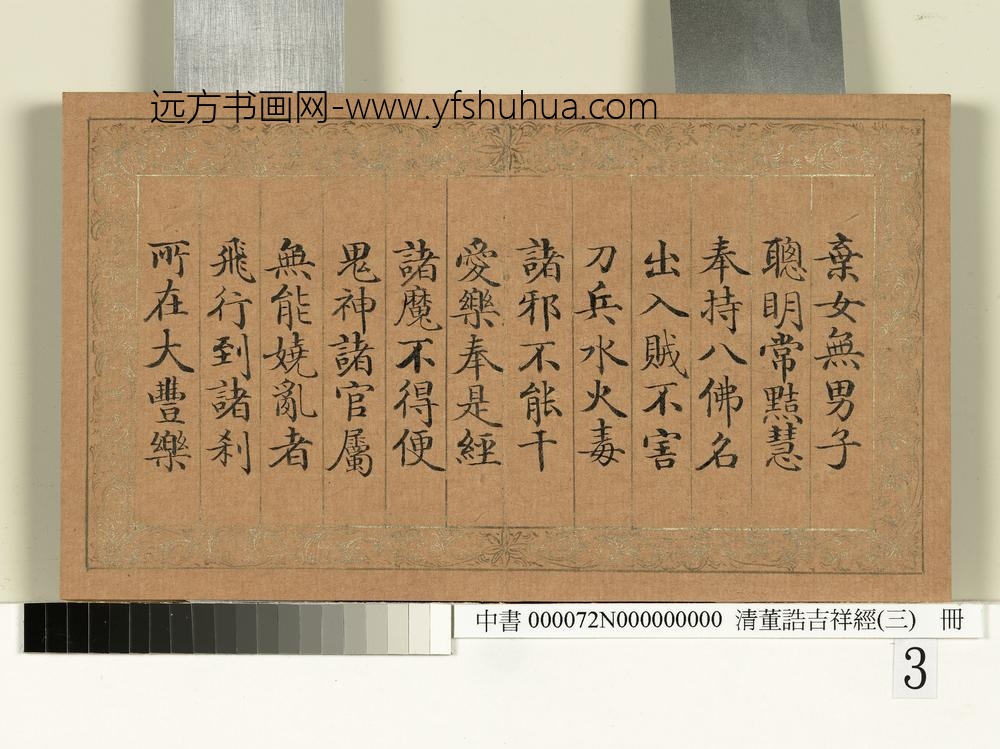 远方书画网-www.yfshuhua.com
棄女無男子
聰明常黠慧
奉持八佛名
出入賊不害
刀兵水火毒
諸邪不能干
愛樂奉是經
諸魔不得便
鬼神諸官屬
無能嬈亂者
飛行到諸刹
所在大豐樂
中書 000072N000000000 清董誥吉祥經(三) 冊
3